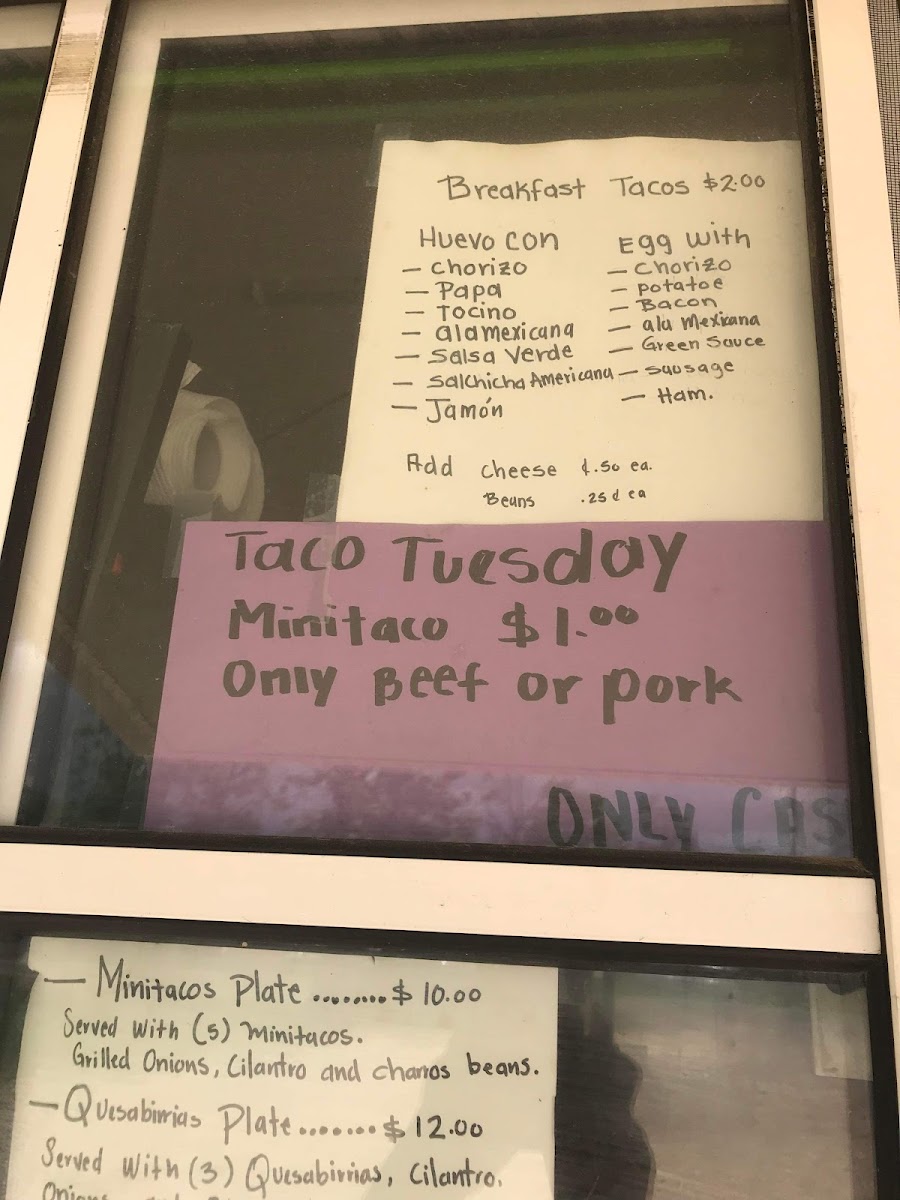 Breakfast Tacos $2.00
Huevo con
- chorizo
- Papa
- Tocino
- alamexicana
- Salsa Verde
- Salchicha Americana
- Jamón
Egg with
- Chorizo
- potatoe
- Bacon
- ala Mexicana
- Green Sauce
- sausage
- Ham.
Add cheese ¢.50 ea.
Beans .25¢ ea
Taco Tuesday
Minitaco $1.00
Only Beef or pork
ONLY CAS
- Minitacos Plate ......... $10.00
Served with (5) minitacos.
Grilled Onions, Cilantro and charros beans.
- Quesabirrias Plate ........ $12.00
Served with (3) Quesabirrias, Cilantro,